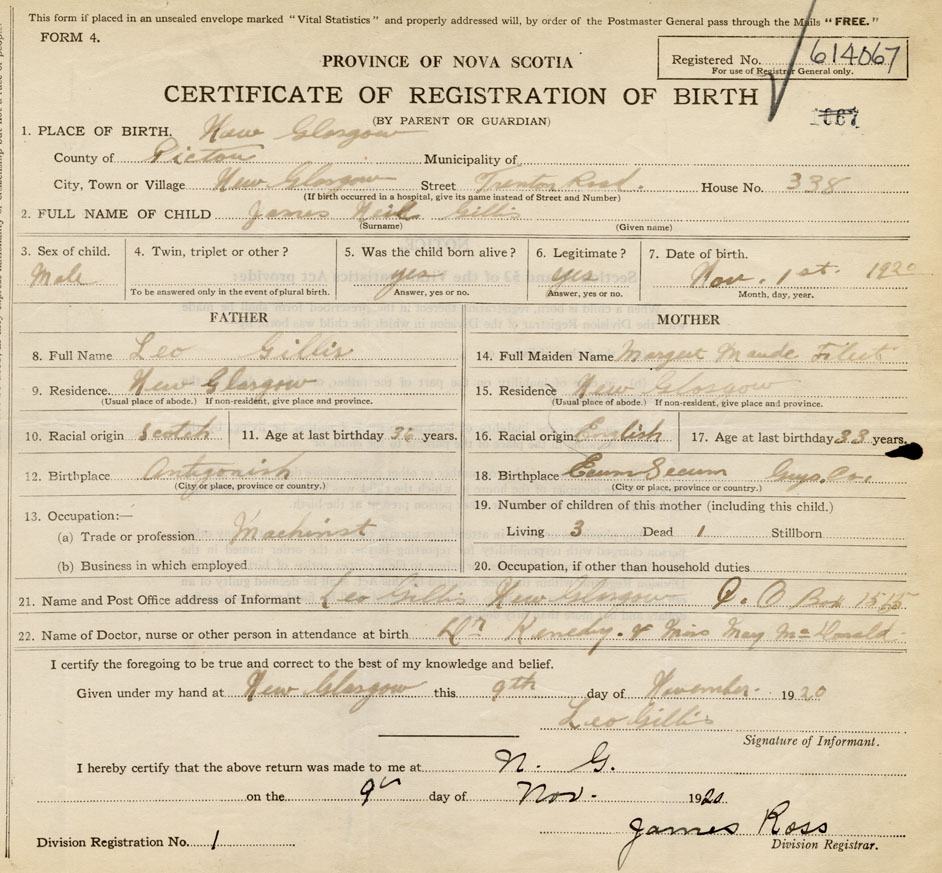 This form if placed in an unsealed envelope marked "Vital Statistics" and properly addressed will, by order of the Postmaster General pass through the Mails "FREE."
FORM 4.
Registered No. 614067
For use of Registrar General only.
PROVINCE OF NOVA SCOTIA
CERTIFICATE OF REGISTRATION OF BIRTH
(BY PARENT OR GUARDIAN)
1. PLACE OF BIRTH. New Glasgow
County of Pictou Municipality of
City, Town or Village New Glasgow Street Trenton Road. House No. 338
(If birth occurred in a hospital, give its name instead of Street and Number)
2. FULL NAME OF CHILD James Neil Gillis
(Surname) (Given name)
3. Sex of child. 4. Twin, triplet or other? 5. Was the child born alive? 6. Legitimate? 7. Date of birth.
Male yes yes Nov. 1st 1920
To be answered only in the event of plural birth. Answer, yes or no. Answer, yes or no. Month, day, year.
FATHER MOTHER
8. Full Name Leo Gillis 14. Full Maiden Name Margert Maude
9. Residence. New Glasgow 15. Residence New Glasgow
(Usual place of abode.) If non-resident, give place and province. (Usual place of abode.) If non-resident, give place and province.
10. Racial origin Scotch 11. Age at last birthday 36 years. 16. Racial origin English 17. Age at last birthday 33 years.
12. Birthplace Antigonish 18. Birthplace Ecum Secum Guys. Co.
(City or place, province or country.) (City or place, province or country.)
13. Occupation:— 19. Number of children of this mother (including this child.)
(a) Trade or profession Machinist Living 3 Dead 1 Stillborn
(b) Business in which employed 20. Occupation, if other than household duties.
21. Name and Post Office address of Informant Leo Gillis New Glasgow P. O Box
22. Name of Doctor, nurse or other person in attendance at birth Dr Kenedy. & Miss May McDonald
I certify the foregoing to be true and correct to the best of my knowledge and belief.
Given under my hand at New Glasgow this 9th day of November. 1920
Leo Gillis
Signature of Informant.
I hereby certify that the above return was made to me at N. G.
on the 9th day of Nov. 1920
James Ross
Division Registration No. 1 Division Registrar.